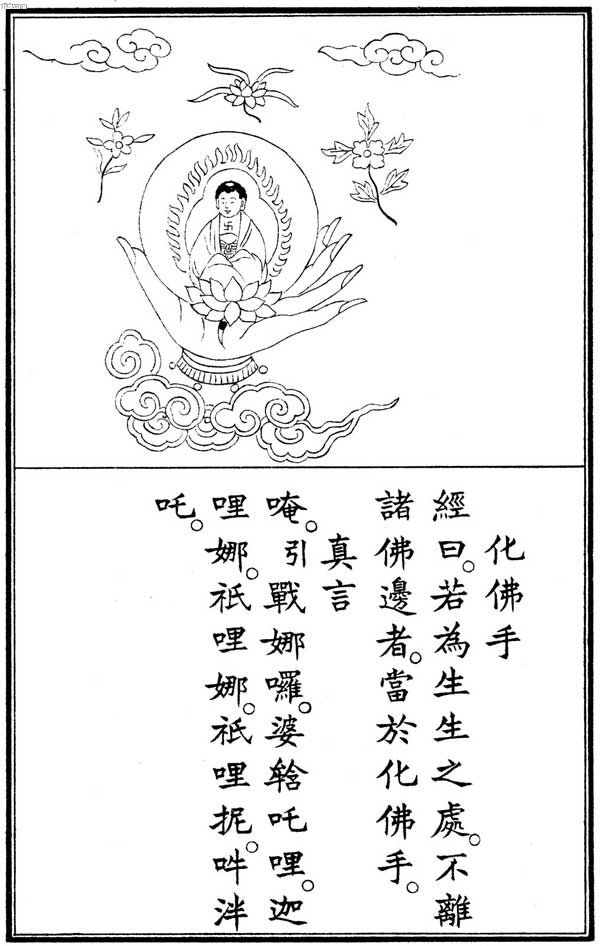 化佛手
經曰。若為生生之處。不離
諸佛邊者。當於化佛手。
真言
唵。引戰娜囉。婆𤚥吒哩。迦
哩娜。祇哩娜。祇哩抳。吽泮
吒。